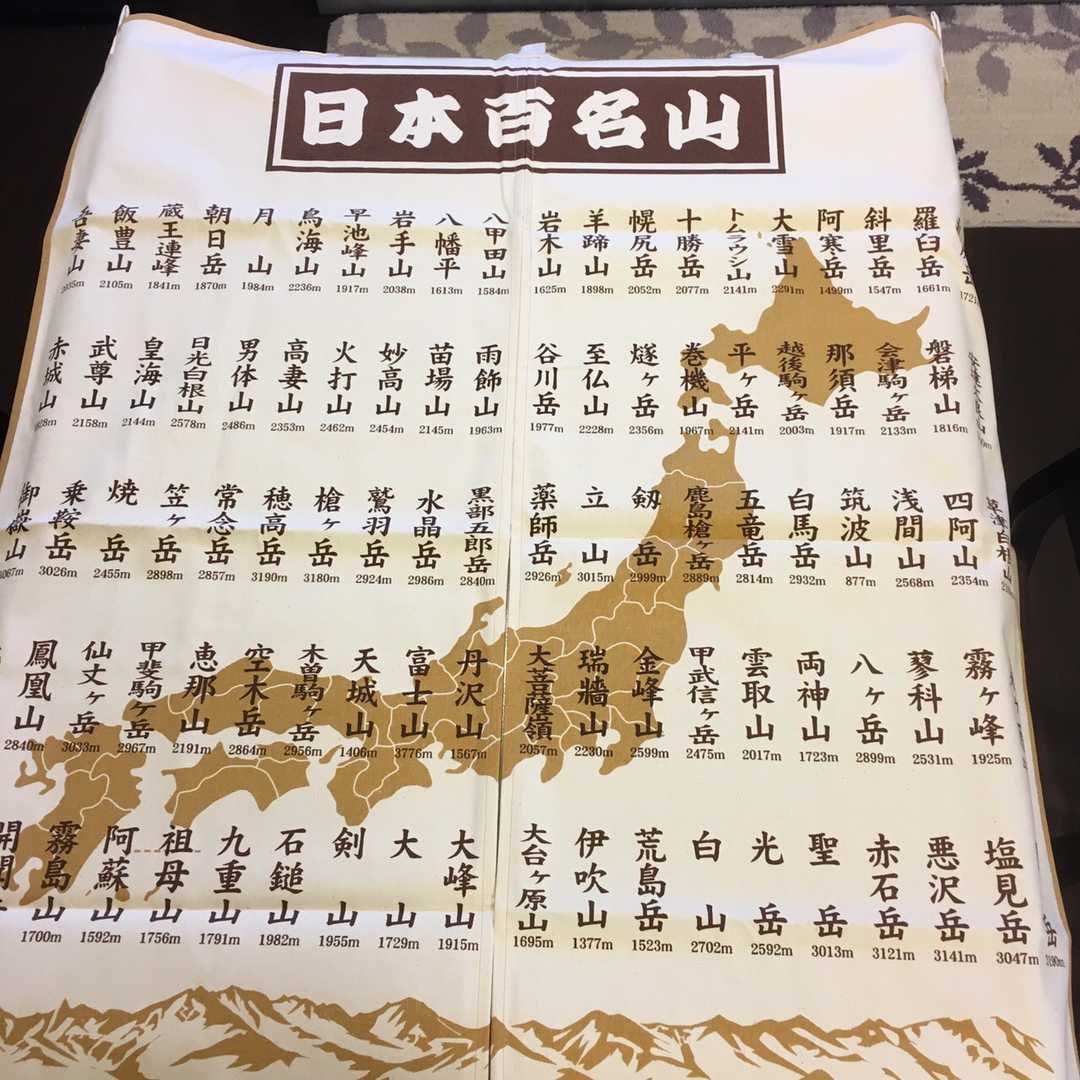 日本百名山
羅臼岳 1661m
斜里岳 1547m
阿寒岳 1499m
大雪山 2291m
トムラウシ山 2141m
十勝岳 2077m
幌尻岳 2052m
羊蹄山 1898m
岩木山 1625m
八甲田山 1584m
八幡平 1613m
岩手山 2038m
早池峰山 1917m
鳥海山 2236m
月山 1984m
朝日岳 1870m
蔵王連峰 1841m
飯豊山 2105m
吾妻山
磐梯山 1816m
会津駒ヶ岳 2133m
那須岳 1917m
越後駒ヶ岳 2003m
平ヶ岳 2141m
巻機山 1967m
燧ヶ岳 2356m
至仏山 2228m
谷川岳 1977m
雨飾山 1963m
苗場山 2145m
妙高山 2454m
火打山 2462m
高妻山 2353m
男体山 2486m
日光白根山 2578m
皇海山 2144m
武尊山 2158m
赤城山
草津白根山
四阿山 2354m
浅間山 2568m
筑波山 877m
白馬岳 2932m
五竜岳 2814m
鹿島槍ヶ岳 2889m
剱岳 2999m
立山 3015m
薬師岳 2926m
黒部五郎岳 2840m
水晶岳 2986m
鷲羽岳 2924m
槍ヶ岳 3180m
穂高岳 3190m
常念岳 2857m
笠ヶ岳 2898m
焼岳 2455m
乗鞍岳 3026m
御嶽山
霧ヶ峰 1925m
蓼科山 2531m
八ヶ岳 2899m
両神山 1723m
雲取山 2017m
甲武信ヶ岳 2475m
金峰山 2599m
瑞牆山 2230m
大菩薩嶺 2057m
丹沢山 1567m
富士山 3776m
天城山 1406m
木曽駒ヶ岳 2956m
空木岳 2864m
恵那山 2191m
甲斐駒ヶ岳 2967m
仙丈ヶ岳 3033m
鳳凰山 2840m
岳 3190m
塩見岳 3047m
悪沢岳 3141m
赤石岳 3121m
聖岳 3013m
光岳 2592m
白山 2702m
荒島岳 1523m
伊吹山 1377m
大台ヶ原山 1695m
大峰山 1915m
大山 1729m
剣山 1955m
石鎚山 1982m
九重山 1791m
祖母山 1756m
阿蘇山 1592m
霧島山 1700m
開聞